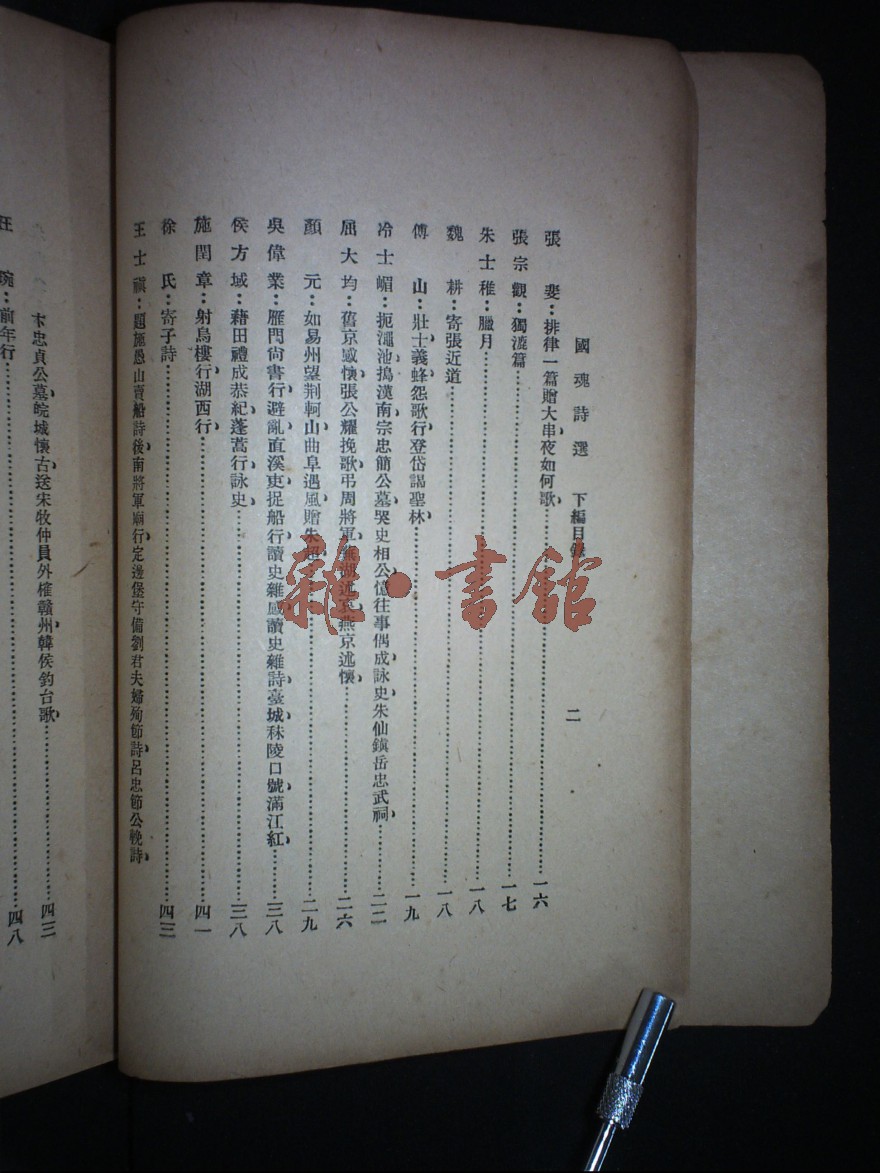 國魂詩選 下編目錄 二
張斐：排律一篇贈大串、夜如何歌……一六
張宗觀：獨漉篇……一七
朱士稚：臘月……一八
魏耕：寄張近道……一八
傅山：壯士、義蜂、怨歌行、登岱謁聖林……一九
冷士嵋：扼澠池、搗漢南、宗忠簡公墓、哭史相公、憶往事偶成、詠史、朱仙鎮岳忠武祠、……二二
屈大均：舊京感懷、張公耀挽歌、弔周將軍、蕪湖述哀、燕京述懷、……二六
顏元：如易州望荆軻山、曲阜遇風、贈朱超……二九
吳偉業：雁門尚書行、避亂、直溪吏、捉船行、讀史雜感、讀史雜詩、臺城、秣陵口號、滿江紅、……三八
侯方域：藉田禮成恭紀、蓬蒿行、詠史……三八
施閏章：射烏樓行、湖西行、……四一
徐氏：寄子詩……四三
王士禛：題施愚山賣船詩後、南將軍廟行、定邊堡守備劉君夫婦殉節詩、呂忠節公輓詩、
卞忠貞公墓、皖城懷古、送宋牧仲員外榷贛州、韓侯釣台歌、……四三
汪琬：前年行……四八
雜·書館